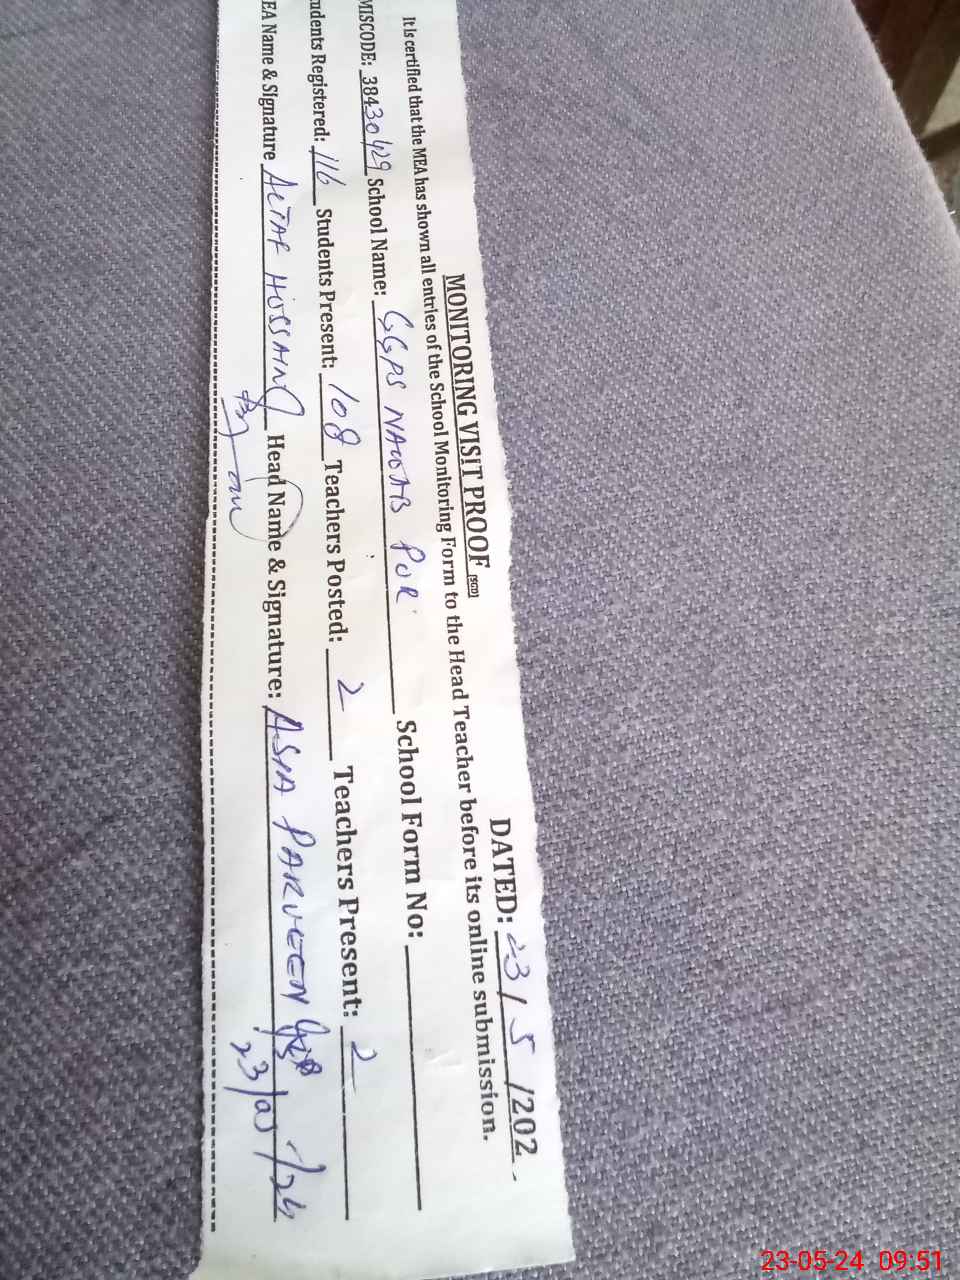 MONITORING VISIT PROOF (SCD) DATED: 23/5/202
It is certified that the MEA has shown all entries of the School Monitoring Form to the Head Teacher before its online submission.
MISCODE: 38430429 School Name: GGPS NAWAB PUR School Form No:
udents Registered: 116 Students Present: 108 Teachers Posted: 2 Teachers Present: 2
EA Name & Signature ALTAF HUSSAIN Head Name & Signature: ASIA PARVEEN
23/05/24
23-05-24 09:51